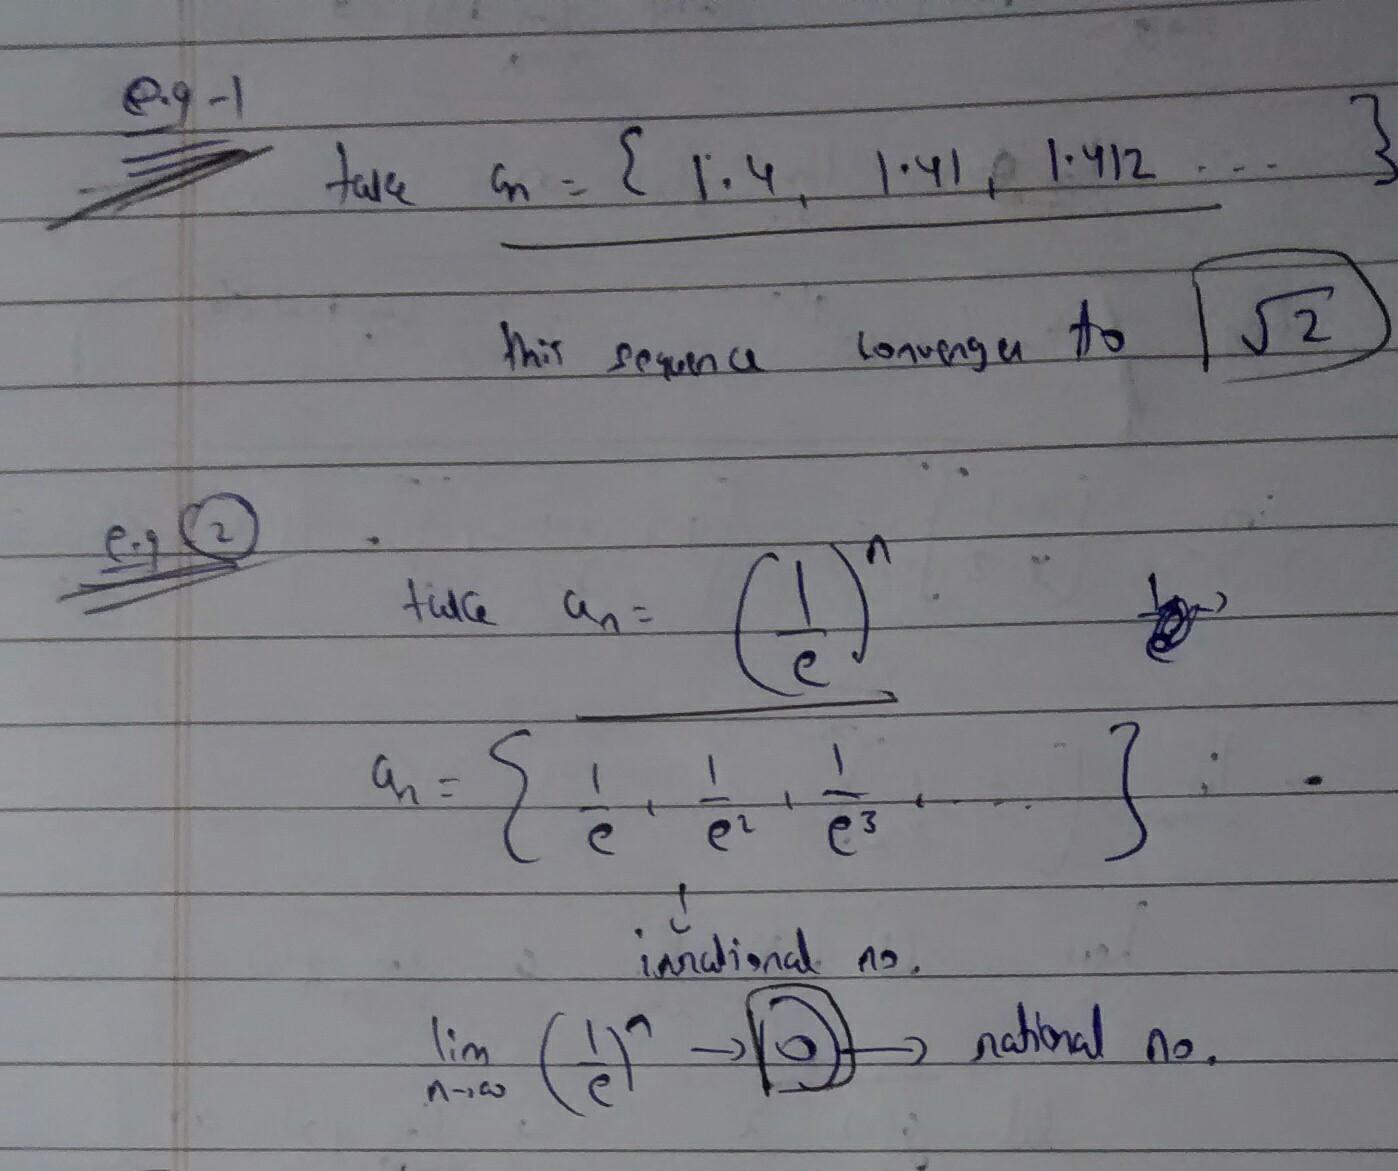 e.g -1
take an = { 1.4, 1.41, 1.412 .... }
this sequence converges to √2
e.g ②
take an = (1/e)ⁿ
an = { 1/e, 1/e², 1/e³, ..... }
irrational no.
lim n→∞ (1/e)ⁿ → 0 → rational no.